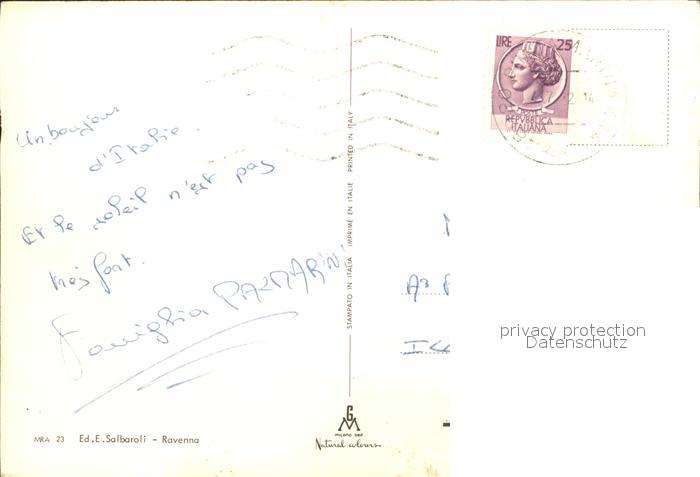 Un bonjour
d'Italie.
Et le soleil n'est pas
très fort.
Famiglia PALMARINI
MRA 23 Ed.E.Salbaroli - Ravenna
STAMPATO IN ITALIA IMPRIMÉ EN ITALIE PRINTED IN ITALY
G
M
Natural colours
LIRE 25
REPVBBLICA
ITALIANA
privacy protection
Datenschutz